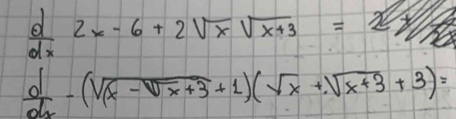 d/dx 2x - 6 + 2√x √x+3 =
d/dx - (√x - √x+3 + 1)(√x + √x+3 + 3) =